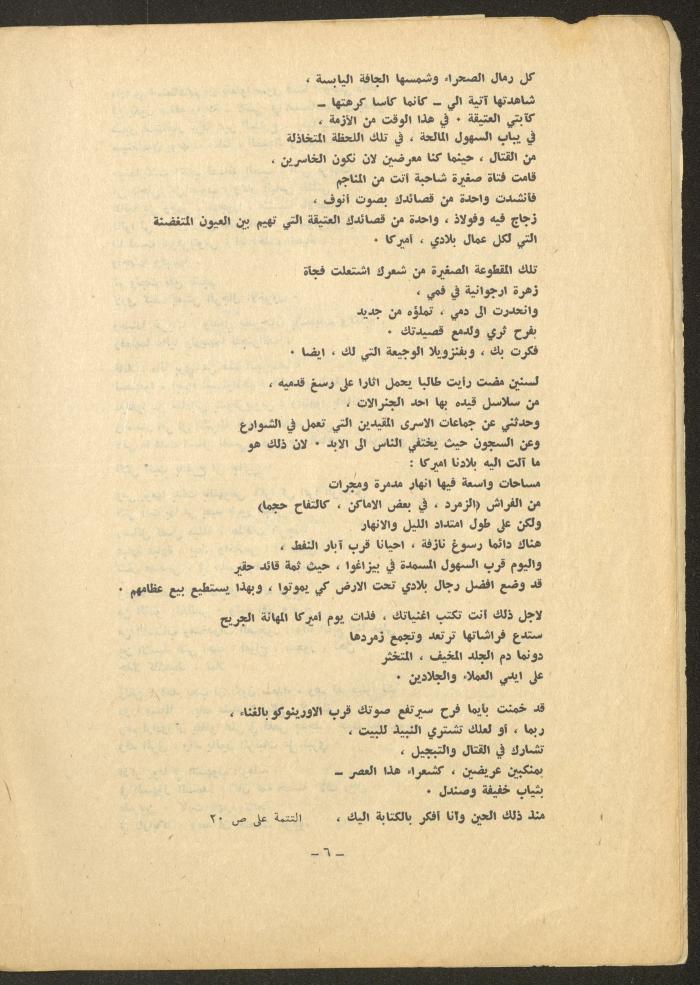 كل رمال الصحراء وشمسها الجافة اليابسة ،
شاهدتها آتية الي ــ كأنما كأسا كرهتها ــ
كآبتي العتيقة ٠ في هذا الوقت من الأزمة ،
في يباب السهول المالحة ، في تلك اللحظة المتخاذلة
من القتال ، حينما كنا معرضين لان نكون الخاسرين ،
قامت فتاة صغيرة شاحبة أتت من المناجم
فأنشدت واحدة من قصائدك بصوت أنوف ،
زجاج فيه وفولاذ ، واحدة من قصائدك العتيقة التي تهيم بين العيون المتغضنة
التي لكل عمال بلادي ، أميركا ٠
تلك المقطوعة الصغيرة من شعرك اشتعلت فجأة
زهرة ارجوانية في فمي ،
وانحدرت الى دمي ، تملؤه من جديد
بفرح ثري ولدمع قصيدتك ٠
فكرت بك ، وبفنزويلا الوجيعة التي لك ، ايضا ٠
لسنين مضت رأيت طالبا يحمل اثارا على رسغ قدميه ،
من سلاسل قيده بها احد الجنرالات ،
وحدثني عن جماعات الاسرى المقيدين التي تعمل في الشوارع
وعن السجون حيث يختفي الناس الى الابد ٠ لان ذلك هو
ما آلت اليه بلادنا اميركا :
مساحات واسعة فيها انهار مدمرة ومجرات
من الفراش (الزمرد ، في بعض الاماكن ، كالتفاح حجما)
ولكن على طول امتداد الليل والانهار
هناك دائما رسوغ نازفة ، احيانا قرب آبار النفط ،
واليوم قرب السهول المسمدة في بيزاغوا ، حيث ثمة قائد حقير
قد وضع افضل رجال بلادي تحت الارض كي يموتوا ، وبهذا يستطيع بيع عظامهم ٠
لاجل ذلك أنت تكتب اغنياتك ، فذات يوم أميركا المهانة الجريح
ستدع فراشاتها ترتعد وتجمع زمردها
دونما دم الجلد المخيف ، المتخثر
على ايدي العملاء والجلادين ٠
قد خمنت بأيما فرح سيرتفع صوتك قرب الاورينوكو بالغناء ،
ربما ، أو لعلك تشتري النبيذ للبيت ،
تشارك في القتال والتبجيل ،
بمنكبين عريضين ، كشعراء هذا العصر ــ
بثياب خفيفة وصندل ٠
منذ ذلك الحين وأنا أفكر بالكتابة اليك ، التتمة على ص ٢٠
ــ ٦ ــ